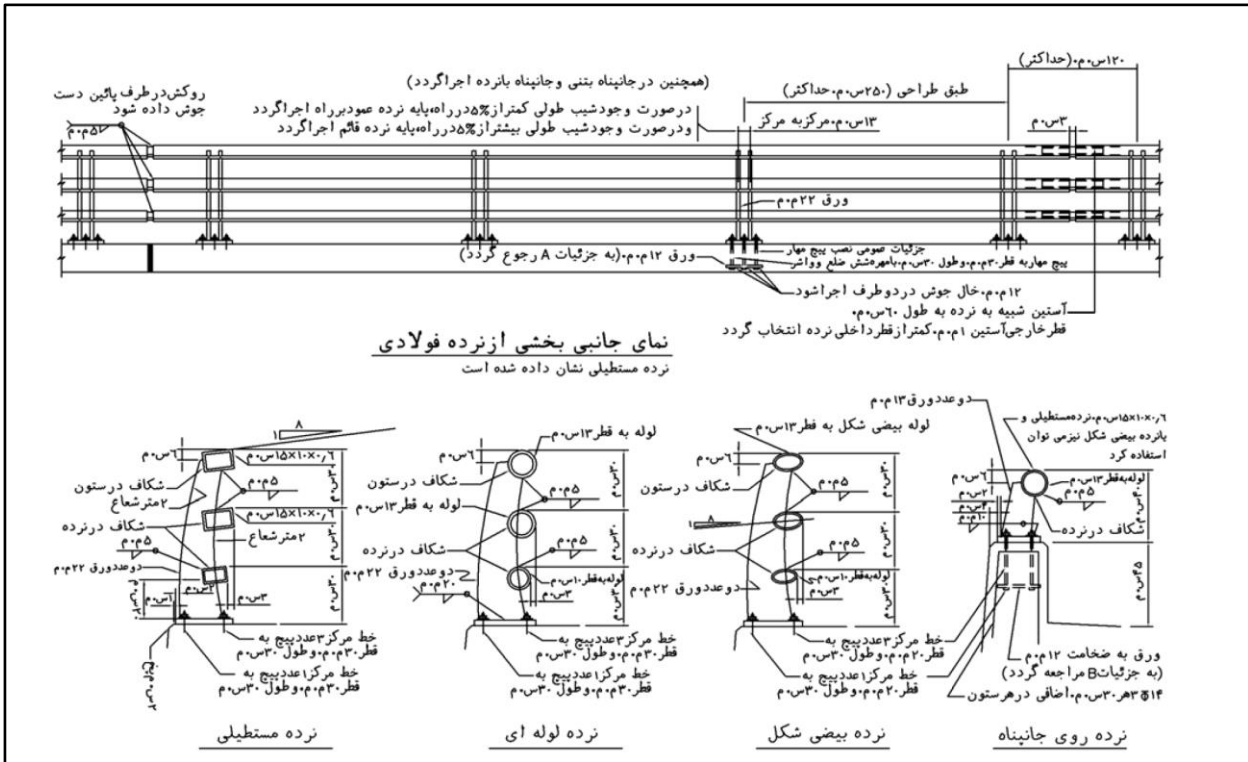 ۱۲۰س.م.(حداکثر)
(همچنین درجانپناه بتنی وجانپناه بانرده اجراگردد)
طبق طراحی (۲۵۰س.م.حداکثر)
روکش درطرف پائین دست
جوش داده شود
۵م.م
درصورت وجودشیب طولی کمتراز۵%درراه،پایه نرده عمودبرراه اجراگردد
ودرصورت وجودشیب طولی بیشتراز۵%درراه،پایه نرده قائم اجراگردد
۱۳س.م.مرکزبه مرکز
۳س.م
ورق ۲۲م.م
جزئیات عمومی نصب پیچ مهار
ورق ۱۲م.م.(به جزئیات A رجوع گردد)
پیچ مهاربه قطر۳۰م.م.وطول ۳۰س.م.بامهره‌شش ضلع وواشر
۱۲م.م.خال جوش دردوطرف اجراشود
آستین شبیه به نرده به طول ۶۰س.م.
قطرخارجی‌آستین ۱م.م.کمترازقطرداخلی‌نرده انتخاب گردد
نمای جانبی بخشی ازنرده فولادی
نرده مستطیلی نشان داده شده است
۸
۱
۶س.م
۱۵×۱۰×۰٫۶س.م
شکاف درستون
۵م.م
۲مترشعاع
۱۵×۱۰×۰٫۶س.م
شکاف درنرده
۲مترشعاع
۵م.م
دوعددورق ۲۲م.م
۳۰س.م
۳۰س.م
۳۰س.م
۳س.م
خط مرکز۳عددپیچ به
قطر۳۰م.م.وطول ۳۰س.م
خط مرکز۱عددپیچ به
قطر۳۰م.م.وطول ۳۰س.م
نرده مستطیلی
لوله به قطر۱۳س.م
۶س.م
شکاف درستون
۵م.م
لوله به قطر۱۳س.م
شکاف درنرده
۵م.م
دوعددورق ۲۲م.م
لوله‌به‌قطر۱۰س.م
۲۰م.م
۳س.م
۳۰س.م
۳۰س.م
۳۰س.م
خط مرکز۳عددپیچ به
قطر۳۰م.م.وطول ۳۰س.م
خط مرکز۱عددپیچ به
قطر۳۰م.م.وطول ۳۰س.م
نرده لوله ای
لوله بیضی شکل به قطر۱۳س.م
۶س.م
شکاف درستون
۵م.م
۸
۱
شکاف درنرده
۵م.م
لوله‌به‌قطر۱۰س.م
دوعددورق ۲۲م.م
۳س.م
۳۰س.م
۳۰س.م
۳۰س.م
خط مرکز۳عددپیچ به
قطر۲۰م.م.وطول ۳۰س.م
خط مرکز۱عددپیچ به
قطر۲۰م.م.وطول ۳۰س.م
نرده بیضی شکل
دوعددورق۱۳م.م
۱۵×۱۰×۰٫۶س.م.نرده‌مستطیلی و
یانرده بیضی شکل نیزمی توان
استفاده کرد
۶س.م
لوله‌به‌قطر۱۳س.م
۵م.م
۲س.م
۱۰م.م
شکاف درنرده
۴۰س.م
۴۵س.م
ورق به ضخامت ۱۲م.م
(به جزئیاتB مراجعه گردد)
۳Φ۱۴هر۳۰س.م.اضافی درهرستون
نرده روی جانپناه